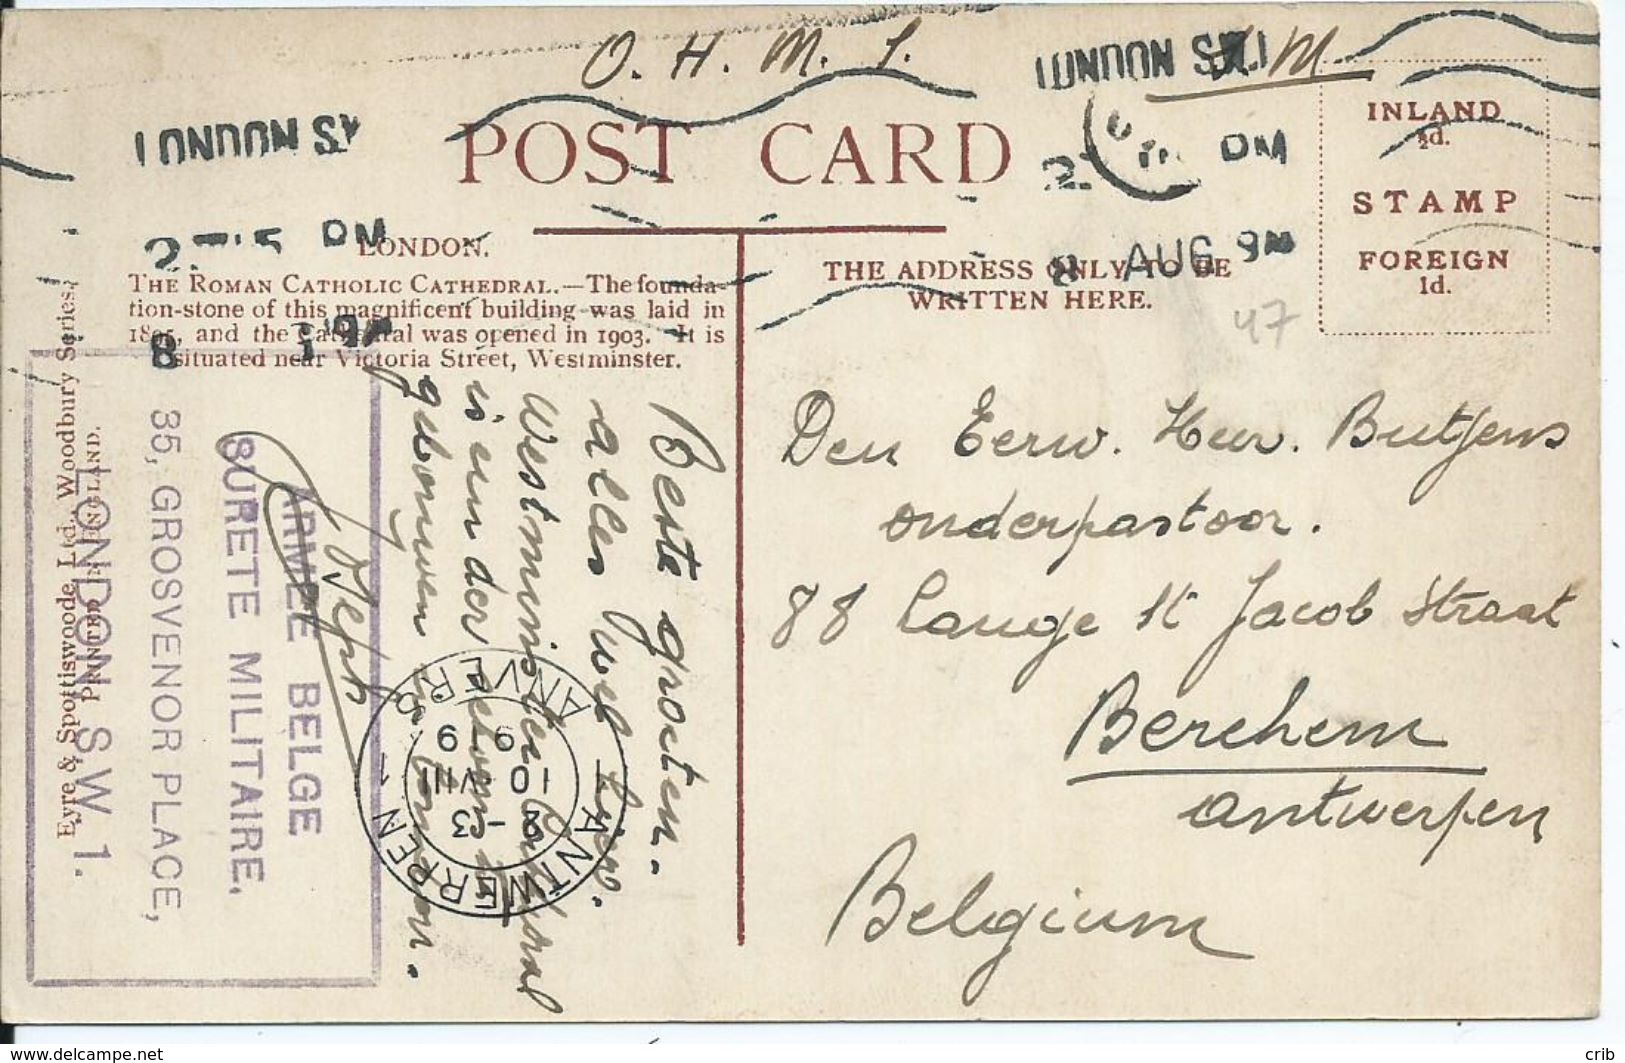 O. H. M. S.
S. M.
LONDON S.W.1
LONDON S.W.1
POST CARD
2 - 15 PM
PM
8 AUG 19
8
INLAND
½d.
STAMP
FOREIGN
1d.
LONDON.
THE ROMAN CATHOLIC CATHEDRAL.—The founda-
tion-stone of this magnificent building was laid in
1895, and the Cathedral was opened in 1903. It is
situated near Victoria Street, Westminster.
THE ADDRESS ONLY TO BE
WRITTEN HERE.
47
Eyre & Spottiswoode, Ltd., Woodbury Series.
PRINTED IN ENGLAND.
ARMEE BELGE
SURETE MILITAIRE,
35, GROSVENOR PLACE,
LONDON S.W 1.
Beste groeten.
alles wel hier.
Westminster Cathedral
is een der schoonste
gebouwen in London.
Joseph
ANTWERPEN 1
ANVERS
2 - 3
10 VIII
9 9
Den Eerw. Heer. Butjens
onderpastoor.
88 Lange St Jacob Straat
Berchem
Antwerpen
Belgium
crib
www.delcampe.net